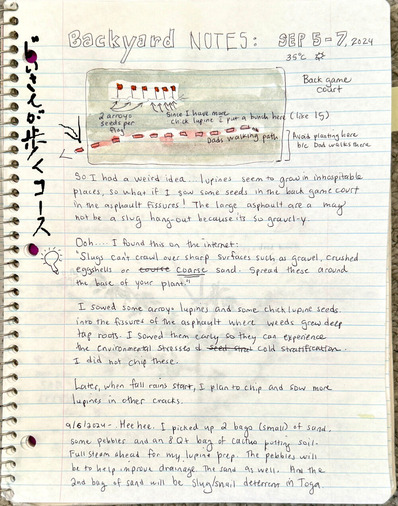 Backyard NOTES: SEP 5-7, 2024
35°C
Back game
court
2 arroyo
seeds per
flag
Since I have more
chick lupine I put a bunch here (like 15)
Dads walking path
Avoid planting here
b/c Dad walks there
じいさんが歩くコース
So I had a weird idea... lupines seem to grow in inhospitable
places, so what if I sow some seeds in the back game court
in the asphalt fissures! The large asphalt are a may
not be a slug hang-out because its so gravel-y.
Ooh.... I found this on the internet:
"Slugs can't crawl over sharp surfaces such as gravel, crushed
eggshells or course coarse sand. Spread these around
the base of your plant."
I sowed some arroyo lupines and some chick lupine seeds
into the fissures of the asphalt where weeds grew deep
tap roots. I sowed them early so they can experience
the environmental stresses & cold stratification.
I did not chip these.
Later, when fall rains start, I plan to chip and sow more
lupines in other cracks.
9/6/2024 - Hee hee. I picked up 2 bags (small) of sand,
some pebbles and an 8 Qt bag of cactus potting soil.
Full steam ahead for my lupine prep. The pebbles will
be to help improve drainage. The sand as well. And the
2nd bag of sand will be slug/snail deterrent in Toga.